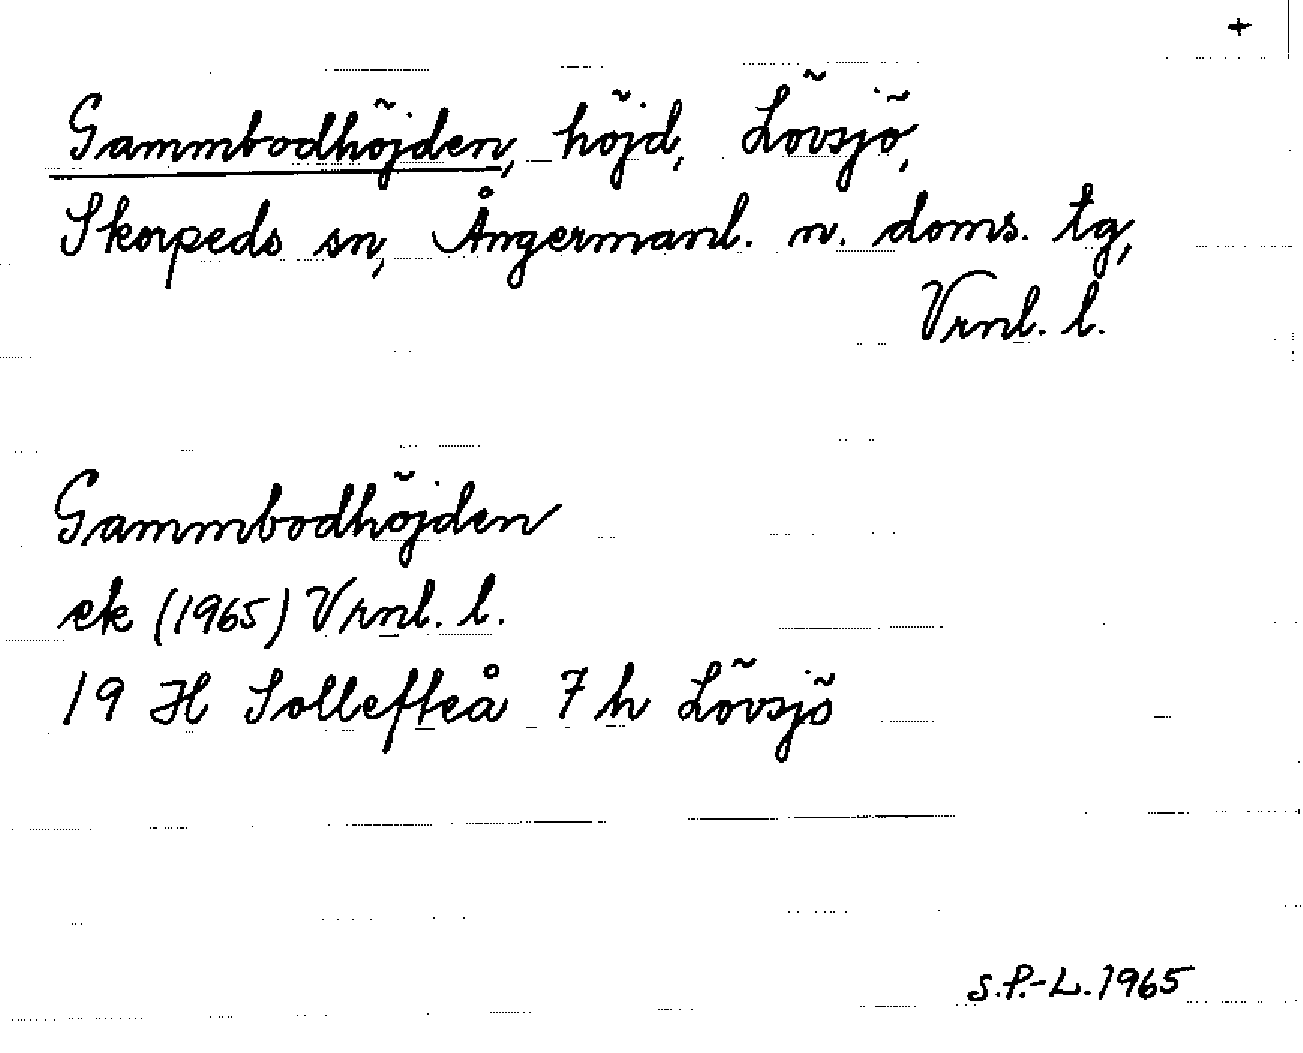 +
Gammbodhöjden, höjd, Lövsjö,
Skorpeds sn, Ångermanl. n. doms. tg,
Vrnl. l.
Gammbodhöjden
ek (1965) Vrnl. l.
19 H Sollefteå 7 h Lövsjö
S.P.-L. 1965